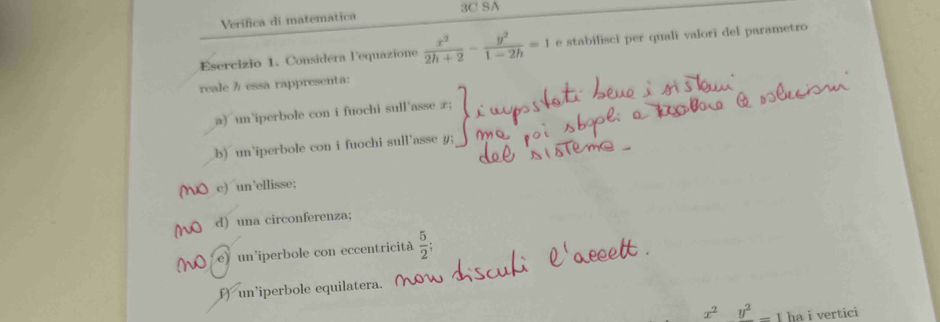 Verifica di matematica 3C SA
Esercizio 1. Considera l'equazione x²/(2h + 2) − y²/(1 − 2h) = 1 e stabilisci per quali valori del parametro
reale h essa rappresenta:
a) un'iperbole con i fuochi sull'asse x;
b) un'iperbole con i fuochi sull'asse y;
impostati bene i sistemi
ma poi sbagli a le soluzioni
del sistema -
no c) un'ellisse;
no d) una circonferenza;
no e) un'iperbole con eccentricità 5/2;
f) un'iperbole equilatera. non discuti l'accett.
x² y² = 1 ha i vertici